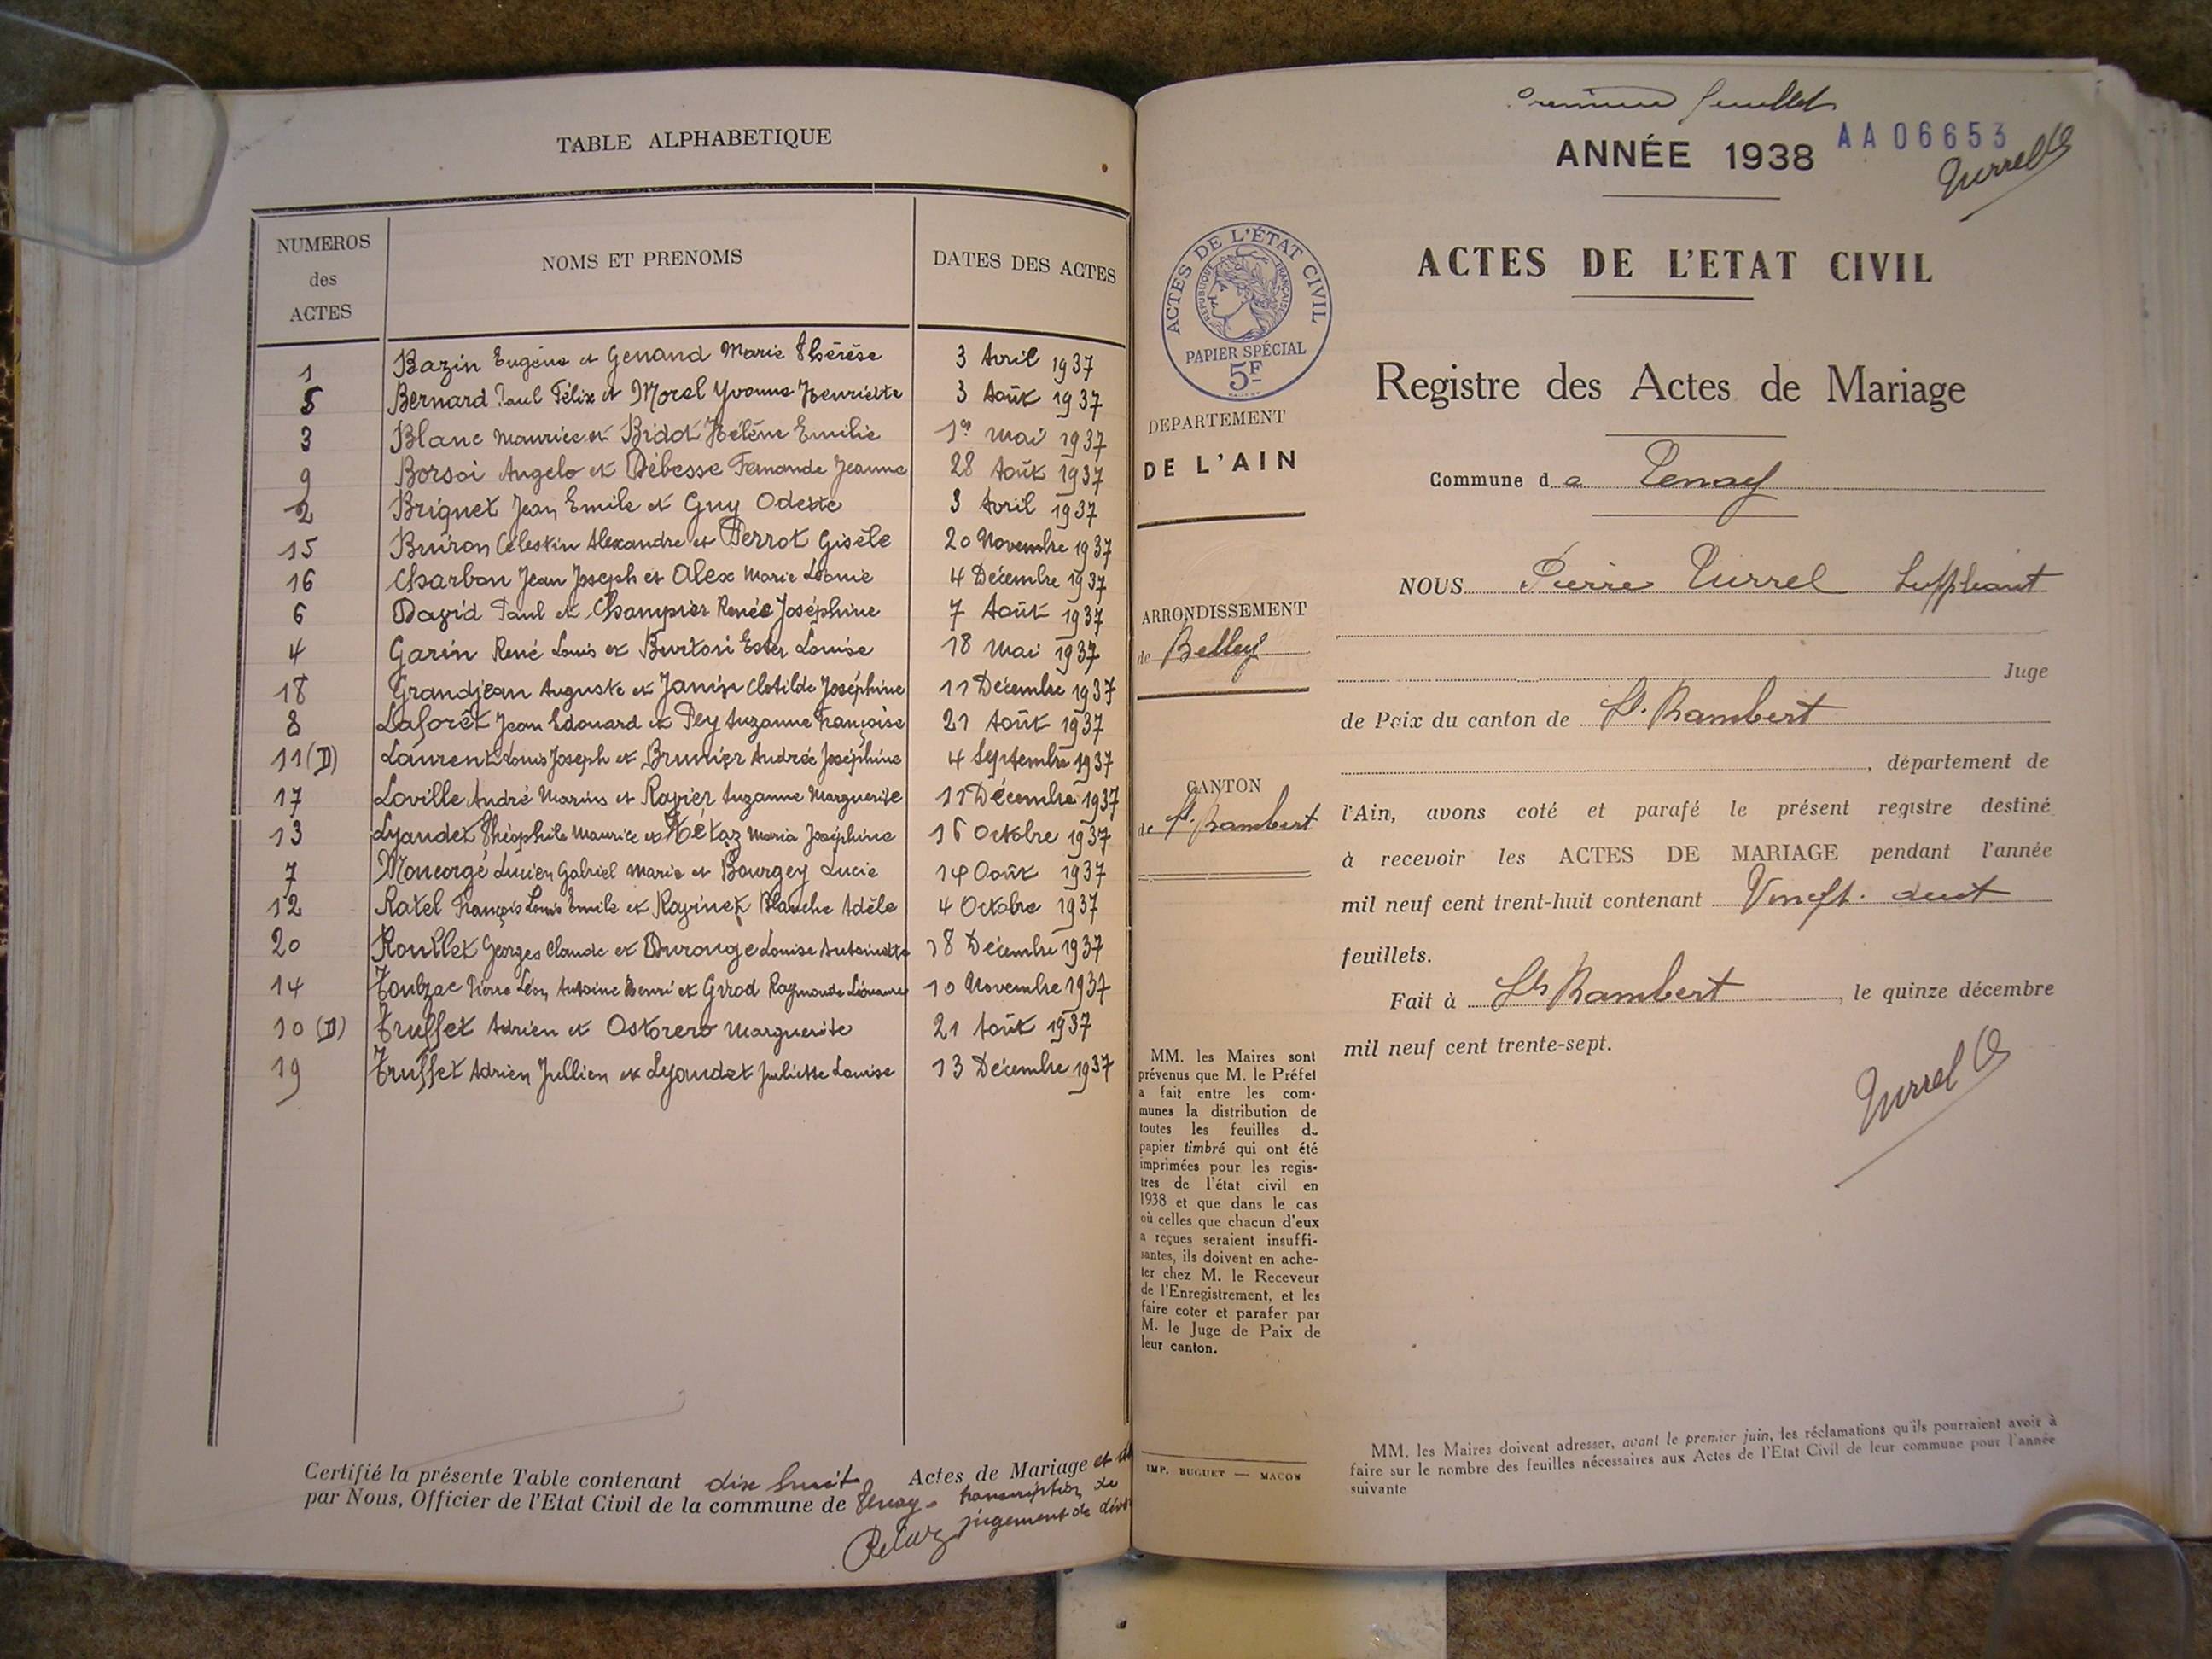 TABLE ALPHABETIQUE
NUMEROS des ACTES
NOMS ET PRENOMS
DATES DES ACTES
1 Bazin Eugène et Genand Marie Thérèse 3 Avril 1937
5 Bernard Paul Félix et Morel Yvonne Henriette 3 Août 1937
3 Blanc Maurice et Bidot Hélène Emilie 1er Mai 1937
9 Borsoi Angelo et Débesse Fernande Jeanne 28 Août 1937
2 Briquet Jean Emile et Guy Odette 3 Avril 1937
15 Buiron Célestin Alexandre et Perrot Gisèle 20 Novembre 1937
16 Charbon Jean Joseph et Alex Marie Léonie 4 Décembre 1937
6 David Paul et Champier Renée Joséphine 7 Août 1937
4 Garin René Louis et Burtosi Ester Louise 18 Mai 1937
18 Grandjean Auguste et Janin Clotilde Joséphine 11 Décembre 1937
8 Laforêt Jean Edouard et Pey Suzanne Françoise 21 Août 1937
11 (D) Laurent Louis Joseph et Brunier Andrée Joséphine 4 Septembre 1937
17 Loville André Marius et Ravier Suzanne Marguerite 11 Décembre 1937
13 Lyaudet Théophile Maurice et Métaz Maria Joséphine 16 Octobre 1937
7 Moncorgé Lucien Gabriel Marie et Bourgey Lucie 14 Août 1937
12 Ratel François Louis Emile et Ravinet Blanche Adèle 4 Octobre 1937
20 Roullet Georges Claude et Durouge Louise Antoinette 18 Décembre 1937
14 Toulzac Pierre Léon Antoine Henri et Girod Raymonde 10 Novembre 1937
10 (D) Truffet Adrien et Ostorero Marguerite 21 Août 1937
19 Truffet Adrien Jullien et Lyaudet Juliette Louise 13 Décembre 1937
Certifié la présente Table contenant dix huit Actes de Mariage et
par Nous, Officier de l'Etat Civil de la commune de Tenay - transcription de
jugement de
premier feuillet
ANNÉE 1938 AA06653
Turrel
ACTES DE L'ÉTAT CIVIL
RÉPUBLIQUE FRANÇAISE
PAPIER SPÉCIAL
5F
DEPARTEMENT
DE L'AIN
ARRONDISSEMENT
de Belley
CANTON
de St. Rambert
MM. les Maires sont
prévenus que M. le Préfet
a fait entre les com-
munes la distribution de
toutes les feuilles d
papier timbré qui ont été
imprimées pour les regis-
tres de l'état civil en
1938 et que dans le cas
où celles que chacun d'eux
a reçues seraient insuffi-
santes, ils doivent en ache-
ter chez M. le Receveur
de l'Enregistrement, et les
faire coter et parafer par
M. le Juge de Paix de
leur canton.
IMP. BUGUET — MACON
ACTES DE L'ETAT CIVIL
Registre des Actes de Mariage
Commune d e Tenay
NOUS Pierre Turrel Suppléant
Juge
de Paix du canton de St. Rambert
, département de
l'Ain, avons coté et parafé le présent registre destiné
à recevoir les ACTES DE MARIAGE pendant l'année
mil neuf cent trent-huit contenant Vingt. deux
feuillets.
Fait à St Rambert, le quinze décembre
mil neuf cent trente-sept.
Turrel
MM. les Maires doivent adresser, avant le premier juin, les réclamations qu'ils pourraient avoir à
faire sur le nombre des feuilles nécessaires aux Actes de l'Etat Civil de leur commune pour l'année
suivante